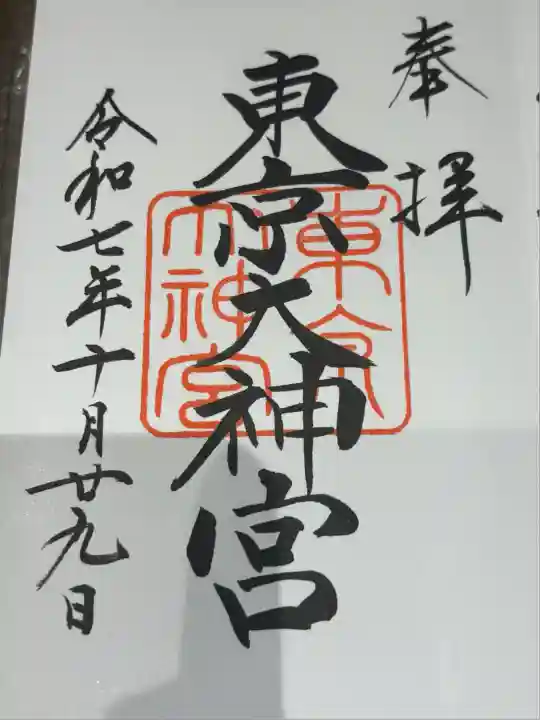 奉拝
東京大神宮
東京
大神宮
令和七年十月廿九日